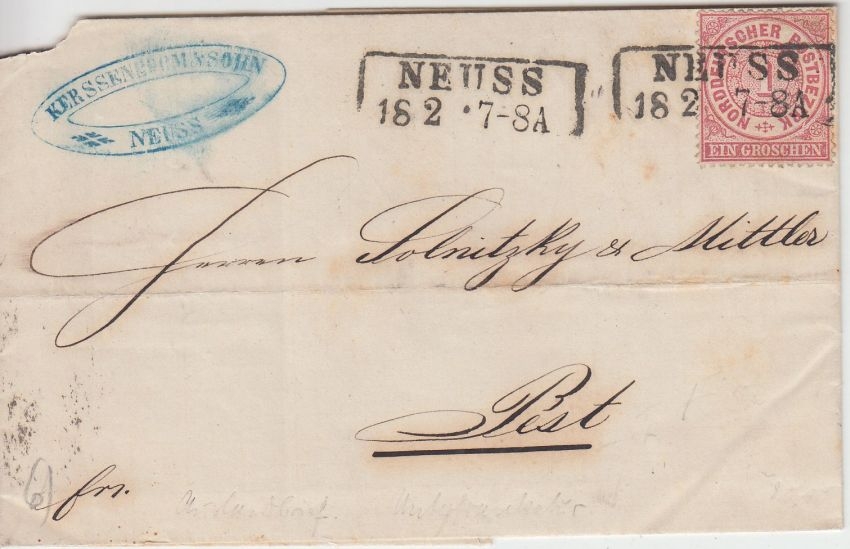 KERSSENBROM & SOHN
NEUSS
NEUSS
18 2 7-8A
NEUSS
18 2 7-8A
NORDDEUTSCHER POSTBEZIRK
1
EIN GROSCHEN
Herren Solnitzky & Mittler
Pest
fr.